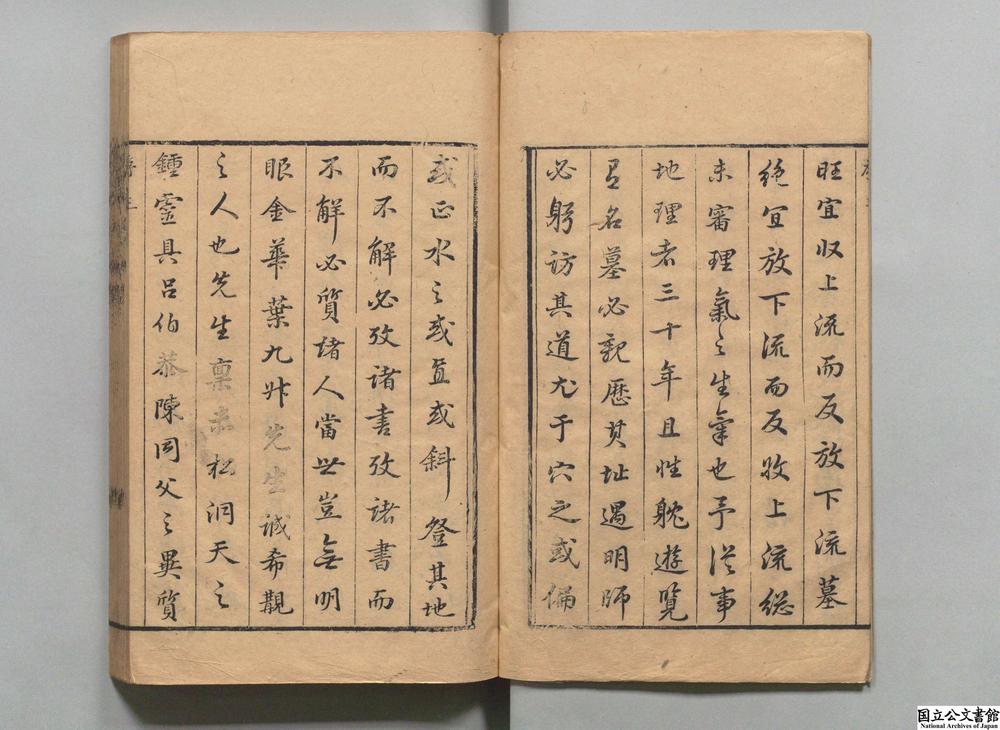 旺宜收上流而反放下流墓
絶宜放下流而反收上流總
未審理氣之生氣也予從事
地理者三十年且性躭遊覽
名墓必親歷其址遇明師
必躬訪其道尤于穴之或偏
或正水之或直或斜登其地
而不解必攷諸書攷諸書而
不解必質諸人當世豈無明
眼金華葉九升先生誠希覯
之人也先生稟赤松洞天之
鍾靈具呂伯恭陳同父之異質
序
国立公文書館
National Archives of Japan